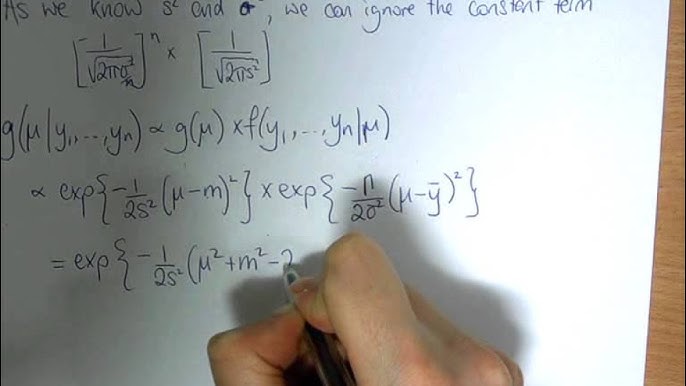 As we know s² and σ², we can ignore the constant term
[1/√(2πσ²)]ⁿ × [1/√(2πs²)]
g(μ|y₁,...,yₙ) ∝ g(μ) × f(y₁,...,yₙ|μ)
∝ exp{-1/2s² (μ-m)²} × exp{-n/2σ² (μ-ȳ)²}
= exp{-1/2s² (μ²+m²-2